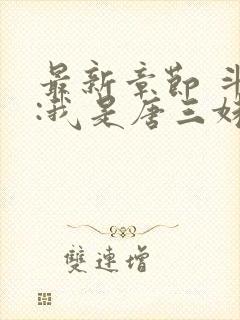 最新章節 斗
:我是唐三妹
雙連增